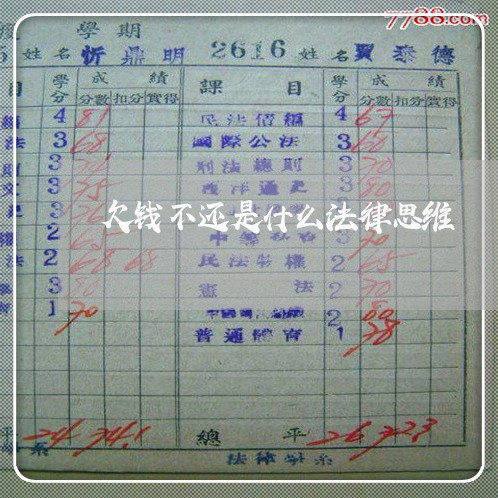 7788.com
學 期
5 姓名 忻鼎明 2616 姓名 賈泰德
目 學分 成績 課目 學分 成績
分數 扣分 實得 分數 扣分 實得
4 81 民法債編 4 67
法 3 68 國際公法 3 60
則 3 刑法總則 3 70
3 75 西洋通史 3 80
史 3
欠钱不还是什么法律思维
權 2 3 70
法 2 68 68 民法物權 2 65
3 80 憲法 2 70
育 1 70 2 80
普通體育 1 78
平 24 74.1 總平 26 72.3
系 法律學系